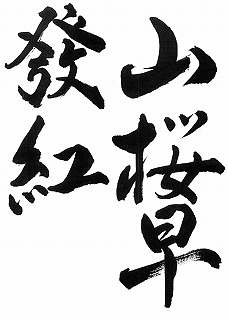 山桜草
發紅